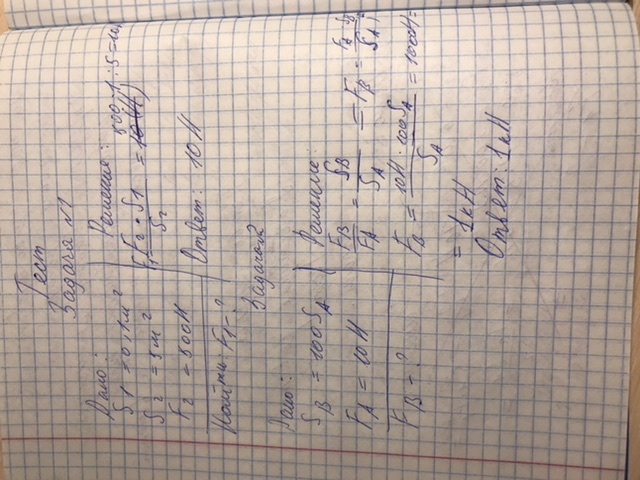 Тест
Задача №1
Дано:
S1 = 0,1м²
S2 = 5м²
F2 = 500Н
Найти: F1-?
Решение:
F1 = F2 · S1 / S2 =
Ответ: 10Н
Задача №2
Дано:
SB = 100SA
FA = 10Н
FB - ?
Решение:
FB / FA = SB / SA
FB = 10Н · 100SA / SA = 1000Н =
= 1кН
Ответ: 1кН